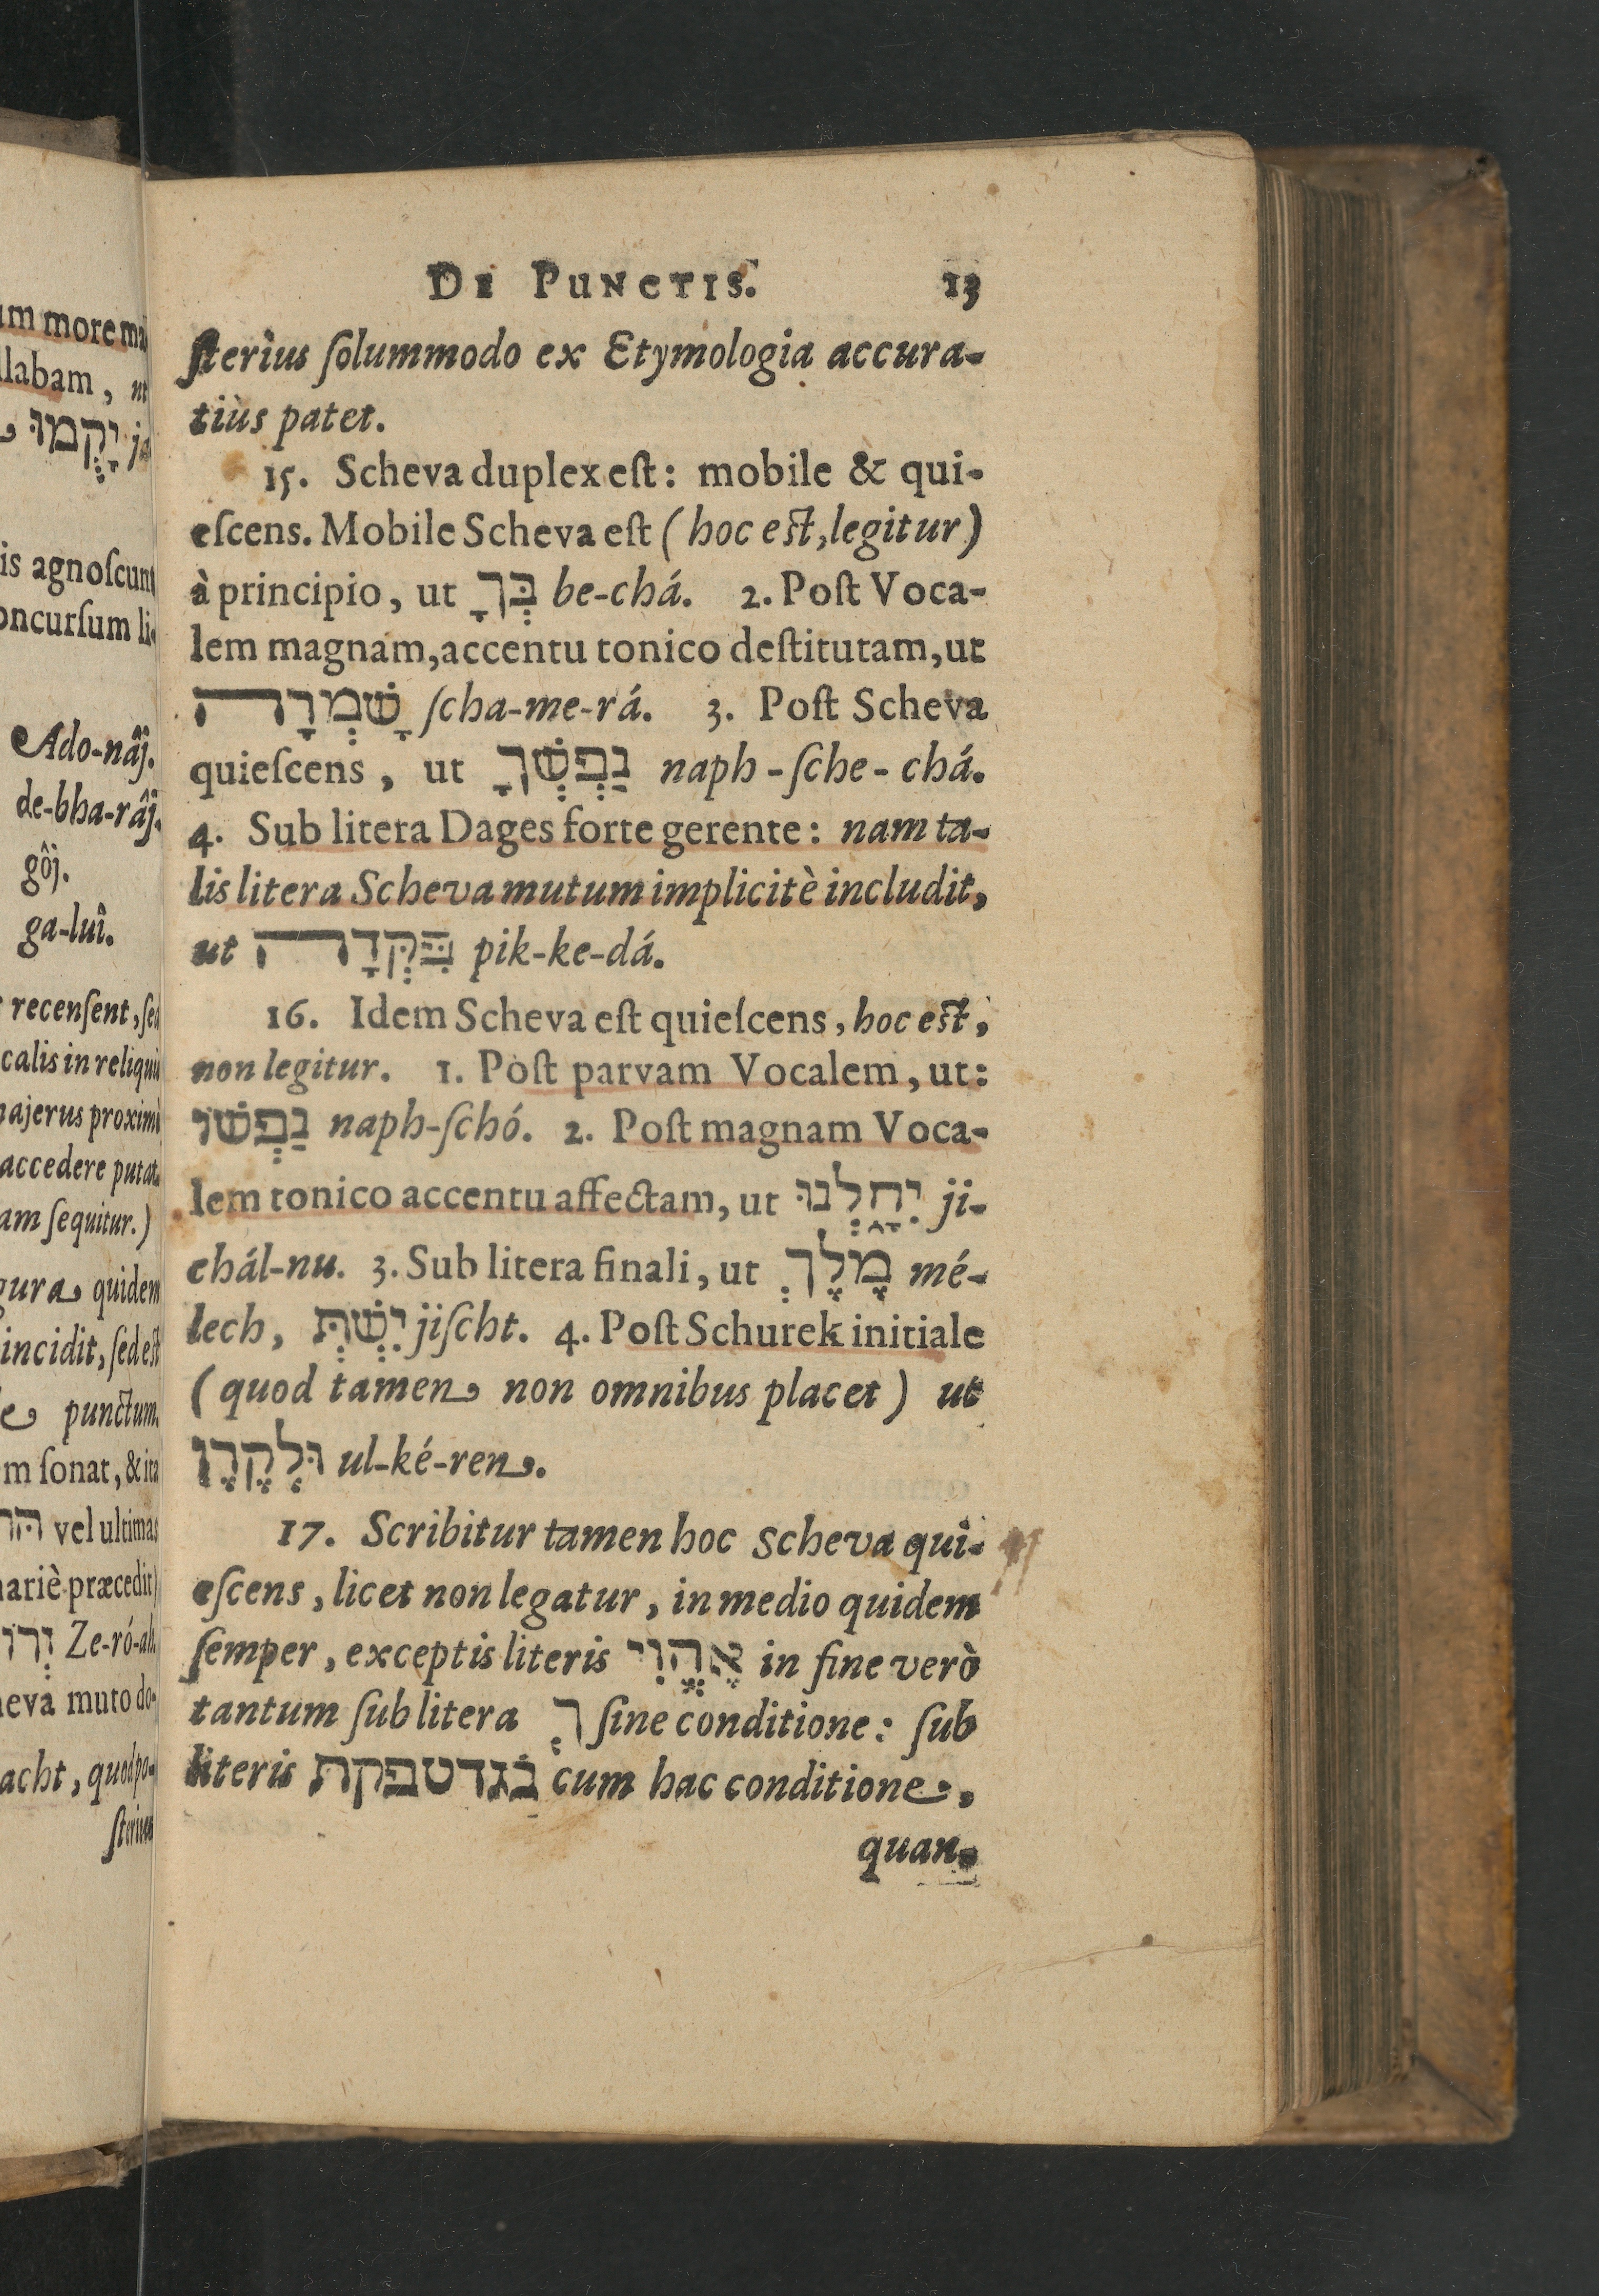 um more ma
llabam, ut
יָקֻמוּ ja
is agnoſcunt
oncurſum li-
Ado-nâj.
de-bha-râj.
gôj.
ga-luî.
recenſent, ſed
calis in reliquis
majerus proximè
accedere putat.
am ſequitur.)
gura quidem
incidit, ſed eſt
punctum.
m ſonat, & ita
vel ultimas
nariè præcedit)
Ze-ró-ah.
heva muto do-
acht, quod po-
ſterius
DE PUNCTIS. 13
ſterius ſolummodo ex Etymologia accura-
tiùs patet.
15. Scheva duplex eſt: mobile & qui-
eſcens. Mobile Scheva eſt (hoc eſt, legitur)
à principio, ut בְּךָ be-chá. 2. Poſt Voca-
lem magnam, accentu tonico deſtitutam, ut
שָׁמְרָה ſcha-me-rá. 3. Poſt Scheva
quieſcens, ut נַפְשְׁךָ naph-ſche-chá.
4. Sub litera Dages forte gerente: nam ta-
lis litera Scheva mutum implicitè includit,
ut פִּקְּדָה pik-ke-dá.
16. Idem Scheva eſt quieſcens, hoc eſt,
non legitur. 1. Poſt parvam Vocalem, ut:
נַפְשׁוֹ naph-ſchó. 2. Poſt magnam Voca-
lem tonico accentu affectam, ut יִחָלְנוּ ji-
chál-nu. 3. Sub litera finali, ut מֶלֶךְ mé-
lech, יִשְׁתְּ jiſcht. 4. Poſt Schurek initiale
(quod tamen non omnibus placet) ut
וּלֶקֶרֶן ul-ké-ren.
17. Scribitur tamen hoc Scheva qui-
eſcens, licet non legatur, in medio quidem
ſemper, exceptis literis אֶהֱוִי in fine verò
tantum ſub litera ךְ ſine conditione: ſub
literis בגדטפקת cum hac conditione,
quan-